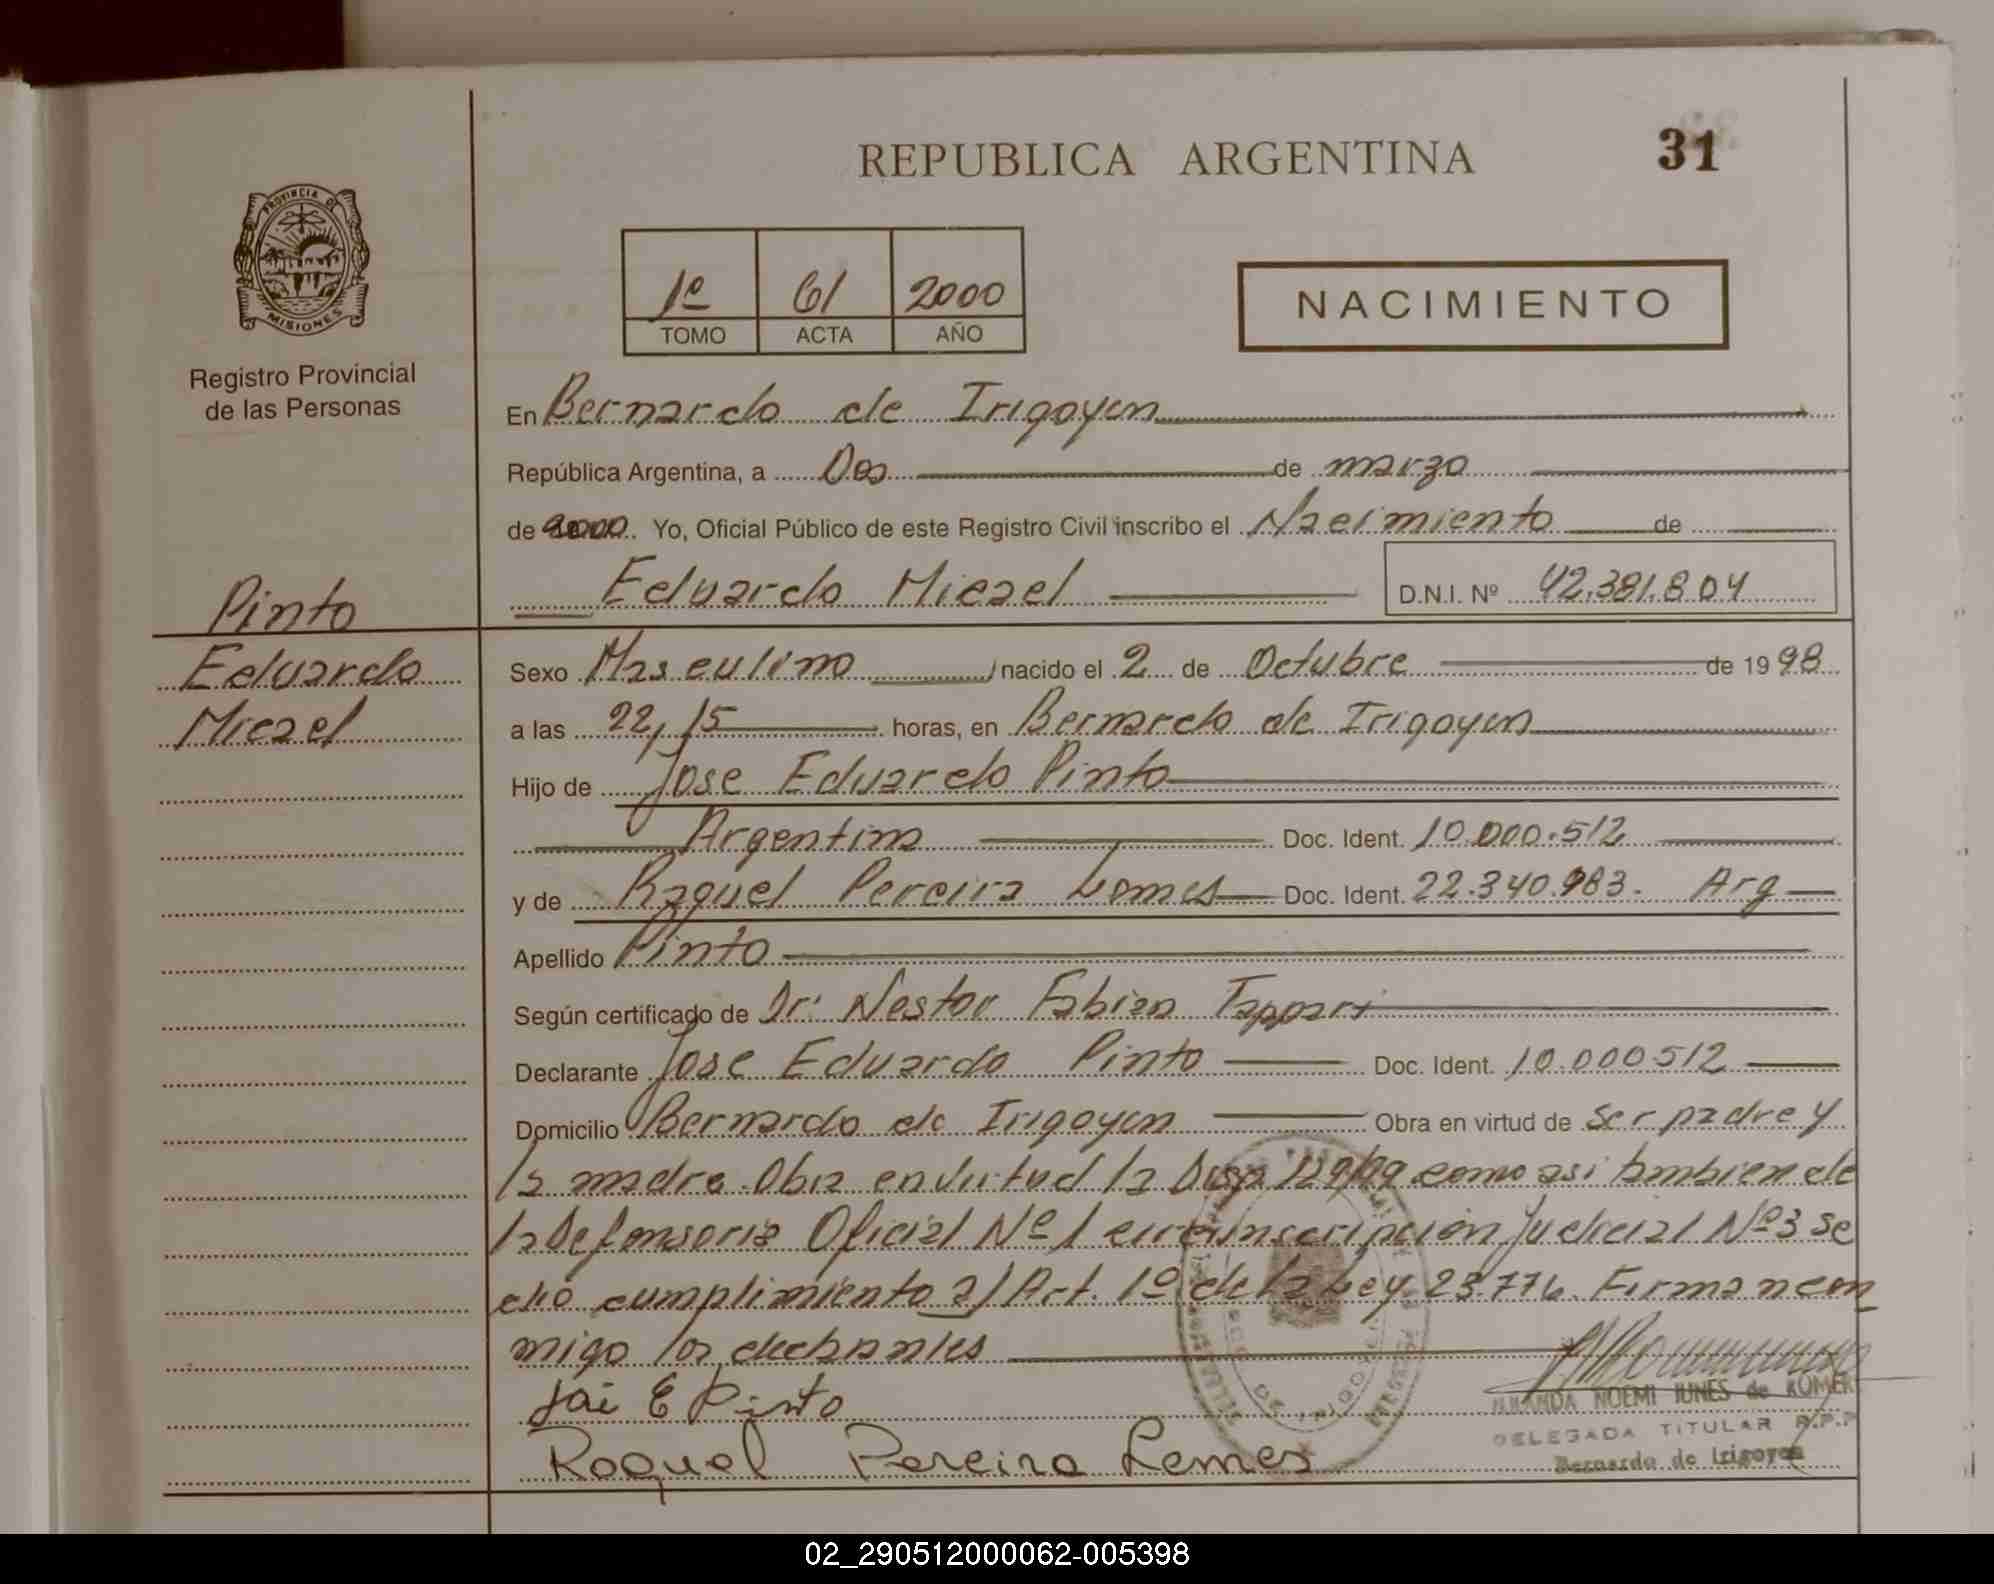 REPUBLICA ARGENTINA
31
PROVINCIA DE
MISIONES
Registro Provincial
de las Personas
1º 61 2000
TOMO ACTA AÑO
NACIMIENTO
En Bernardo de Irigoyen
República Argentina, a Dos de marzo
de 2000. Yo, Oficial Público de este Registro Civil inscribo el Nacimiento de
Eduardo Micael D.N.I. Nº 42.381.804
Pinto
Eduardo
Micael
Sexo Masculino nacido el 2 de Octubre de 1998
a las 22,15 horas, en Bernardo de Irigoyen
Hijo de Jose Eduardo Pinto
Argentina Doc. Ident. 10.000.512
y de Raquel Pereira Lemes Doc. Ident. 22.340.983. Arg
Apellido Pinto
Según certificado de Dr. Nestor Fabian Tappari
Declarante Jose Eduardo Pinto Doc. Ident. 10.000512
Domicilio Bernardo de Irigoyen Obra en virtud de ser padre y
la madre. Obra en virtud la Disp 129/99 como asi tambien de
la Defensoria Oficial Nº 1 circunscripción Judicial Nº 3 se
dió cumplimiento al Art. 1º de la Ley 23.776. Firman con
migo los declarantes
E Pinto
Raquel Pereira Lemes
NOEMI IUNES de ROMER
DELEGADA TITULAR R.P.P
Bernardo de Irigoyen
02_290512000062-005398